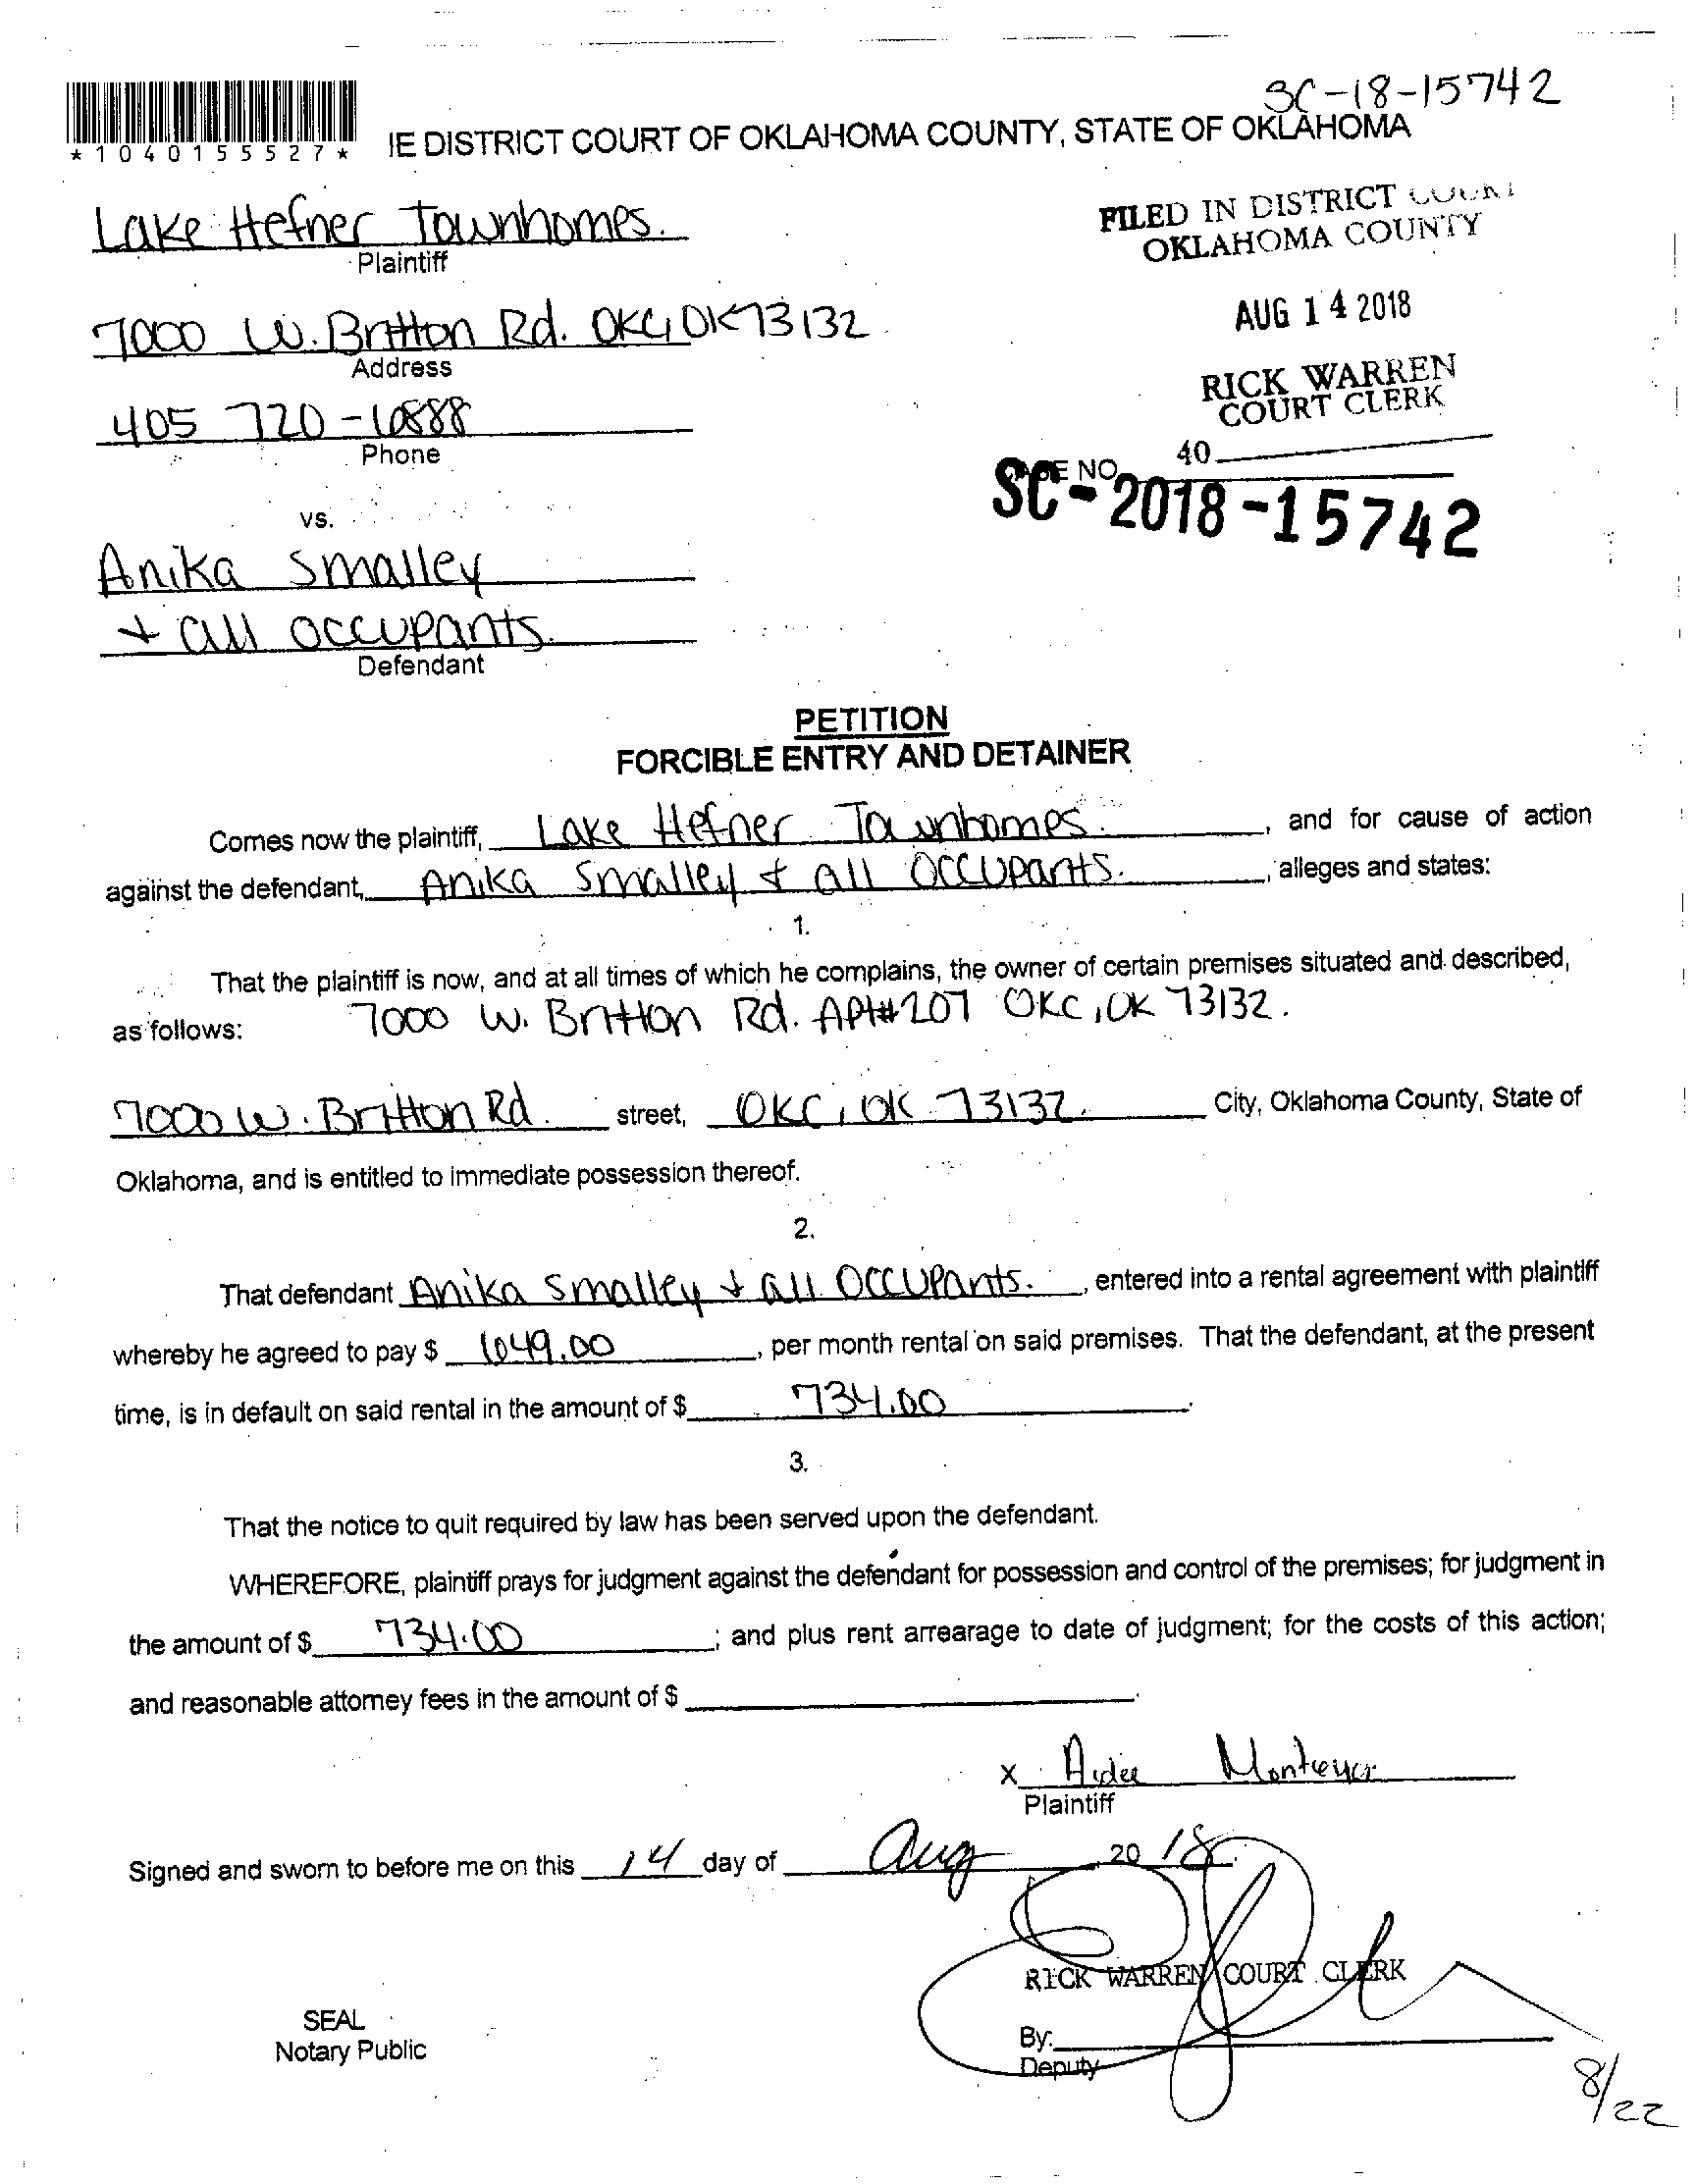 SC-18-15742
*1040155527*
IE DISTRICT COURT OF OKLAHOMA COUNTY, STATE OF OKLAHOMA
Lake Hefner Townhomes.
Plaintiff
FILED IN DISTRICT COURT
OKLAHOMA COUNTY
7000 W. Britton Rd. OKC, OK 73132
Address
AUG 14 2018
RICK WARREN
COURT CLERK
405 720-6888
Phone
40
CASE NO.
SC-2018-15742
vs.
Anika Smalley
+ all occupants.
Defendant
PETITION
FORCIBLE ENTRY AND DETAINER
Comes now the plaintiff, Lake Hefner Townhomes. , and for cause of action
against the defendant, Anika Smalley + all occupants. , alleges and states:
1.
That the plaintiff is now, and at all times of which he complains, the owner of certain premises situated and described,
as follows: 7000 W. Britton Rd. Apt#207 OKC, OK 73132.
7000 W. Britton Rd. street, OKC, OK 73132. City, Oklahoma County, State of
Oklahoma, and is entitled to immediate possession thereof.
2.
That defendant Anika Smalley + all occupants. , entered into a rental agreement with plaintiff
whereby he agreed to pay $ 649.00 , per month rental on said premises. That the defendant, at the present
time, is in default on said rental in the amount of $ 734.00 .
3.
That the notice to quit required by law has been served upon the defendant.
WHEREFORE, plaintiff prays for judgment against the defendant for possession and control of the premises; for judgment in
the amount of $ 734.00 ; and plus rent arrearage to date of judgment; for the costs of this action;
and reasonable attorney fees in the amount of $ .
x Aidee
Plaintiff
Signed and sworn to before me on this 14 day of Aug , 20 18.
RICK WARREN COURT CLERK
SEAL
Notary Public
By:
Deputy
8/22